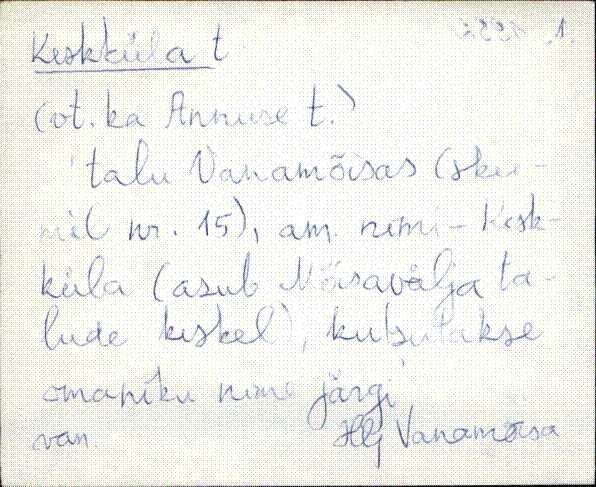 Keskküla t
(vt. ka Annuse t.)
talu Vanamõisas (skee-
mil nr. 15), am. nimi - Kesk-
küla (asub Mõisavälja ta-
lude keskel), kutsutakse
omaniku nime järgi
van. Hlj Vanamõisa